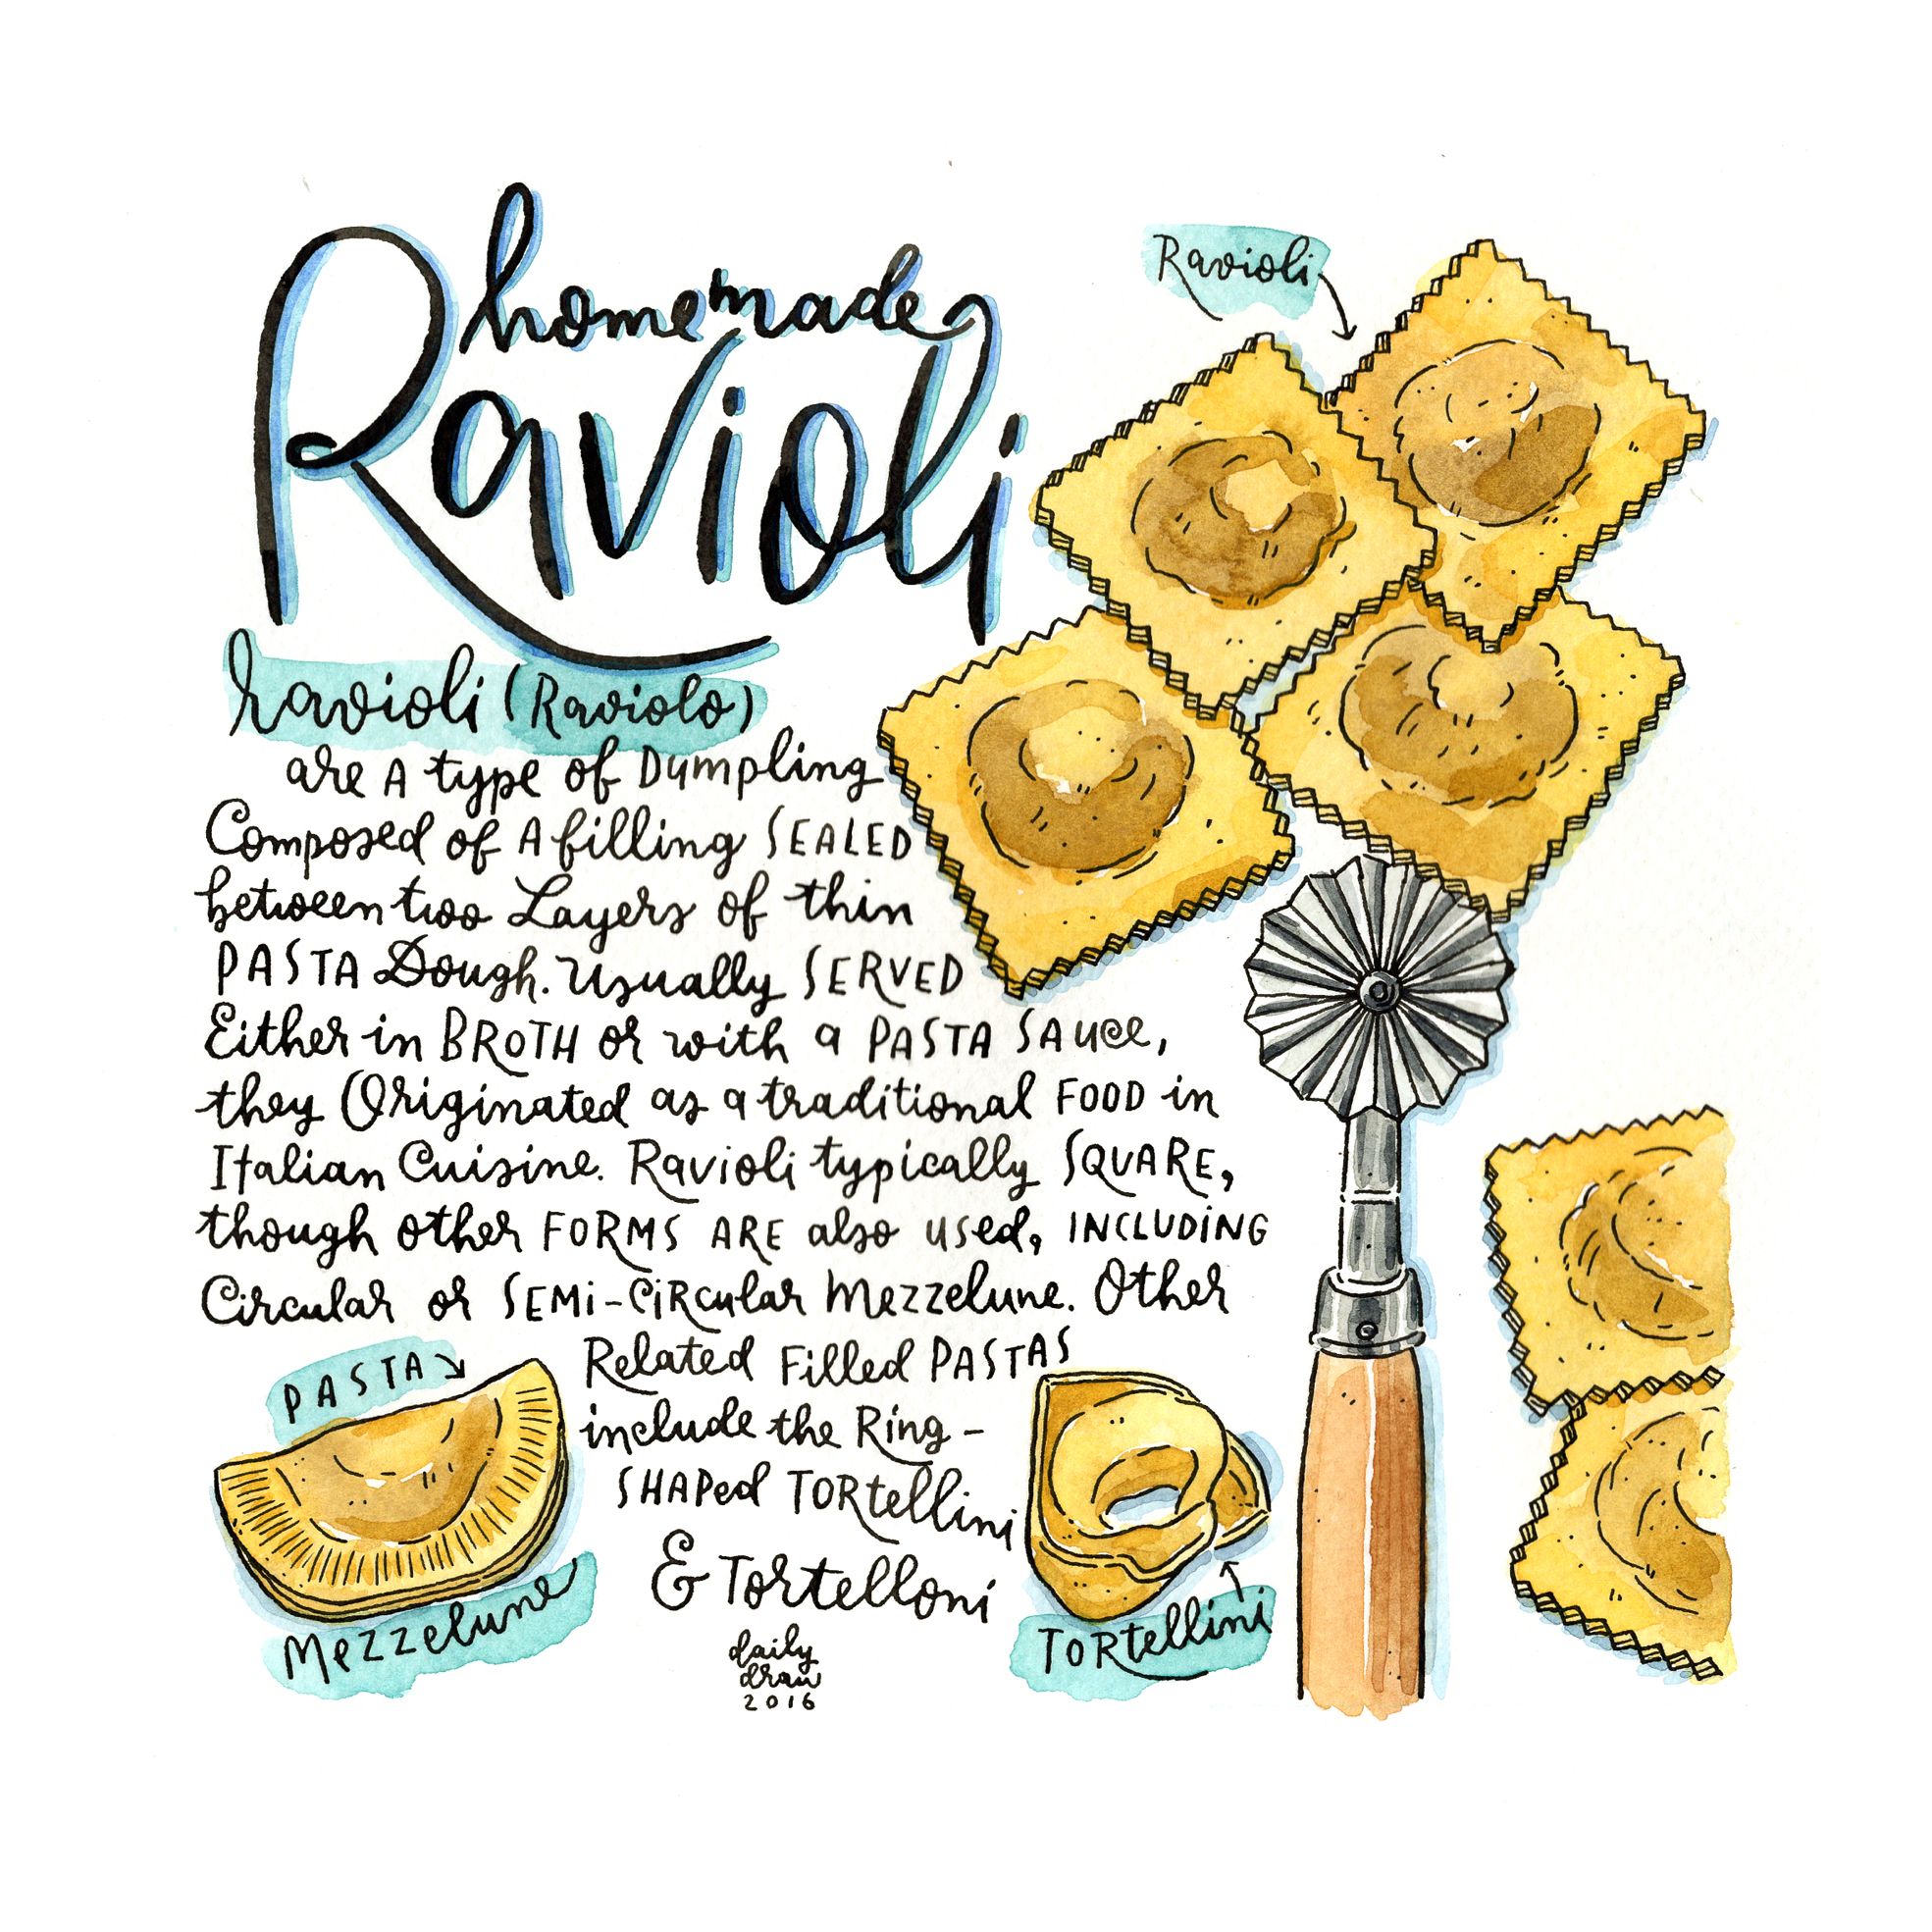 homemade
Ravioli
Ravioli
Ravioli (Raviolo)
are A type of Dumpling
Composed of A filling SEALED
between two Layers of thin
PASTA Dough. Usually SERVED
Either in BROTH or with a PASTA SAuce,
they Originated as a traditional FOOD in
Italian Cuisine. Ravioli typically SQUARE,
though other FORMS ARE also used, INCLUDING
Circular or SEMi-CiRcular Mezzelune. Other
Related Filled PASTAS
include the Ring-
SHAPed TORtellini
& Tortelloni
PASTA
Mezzelune
TORtellini
daily
draw
2016